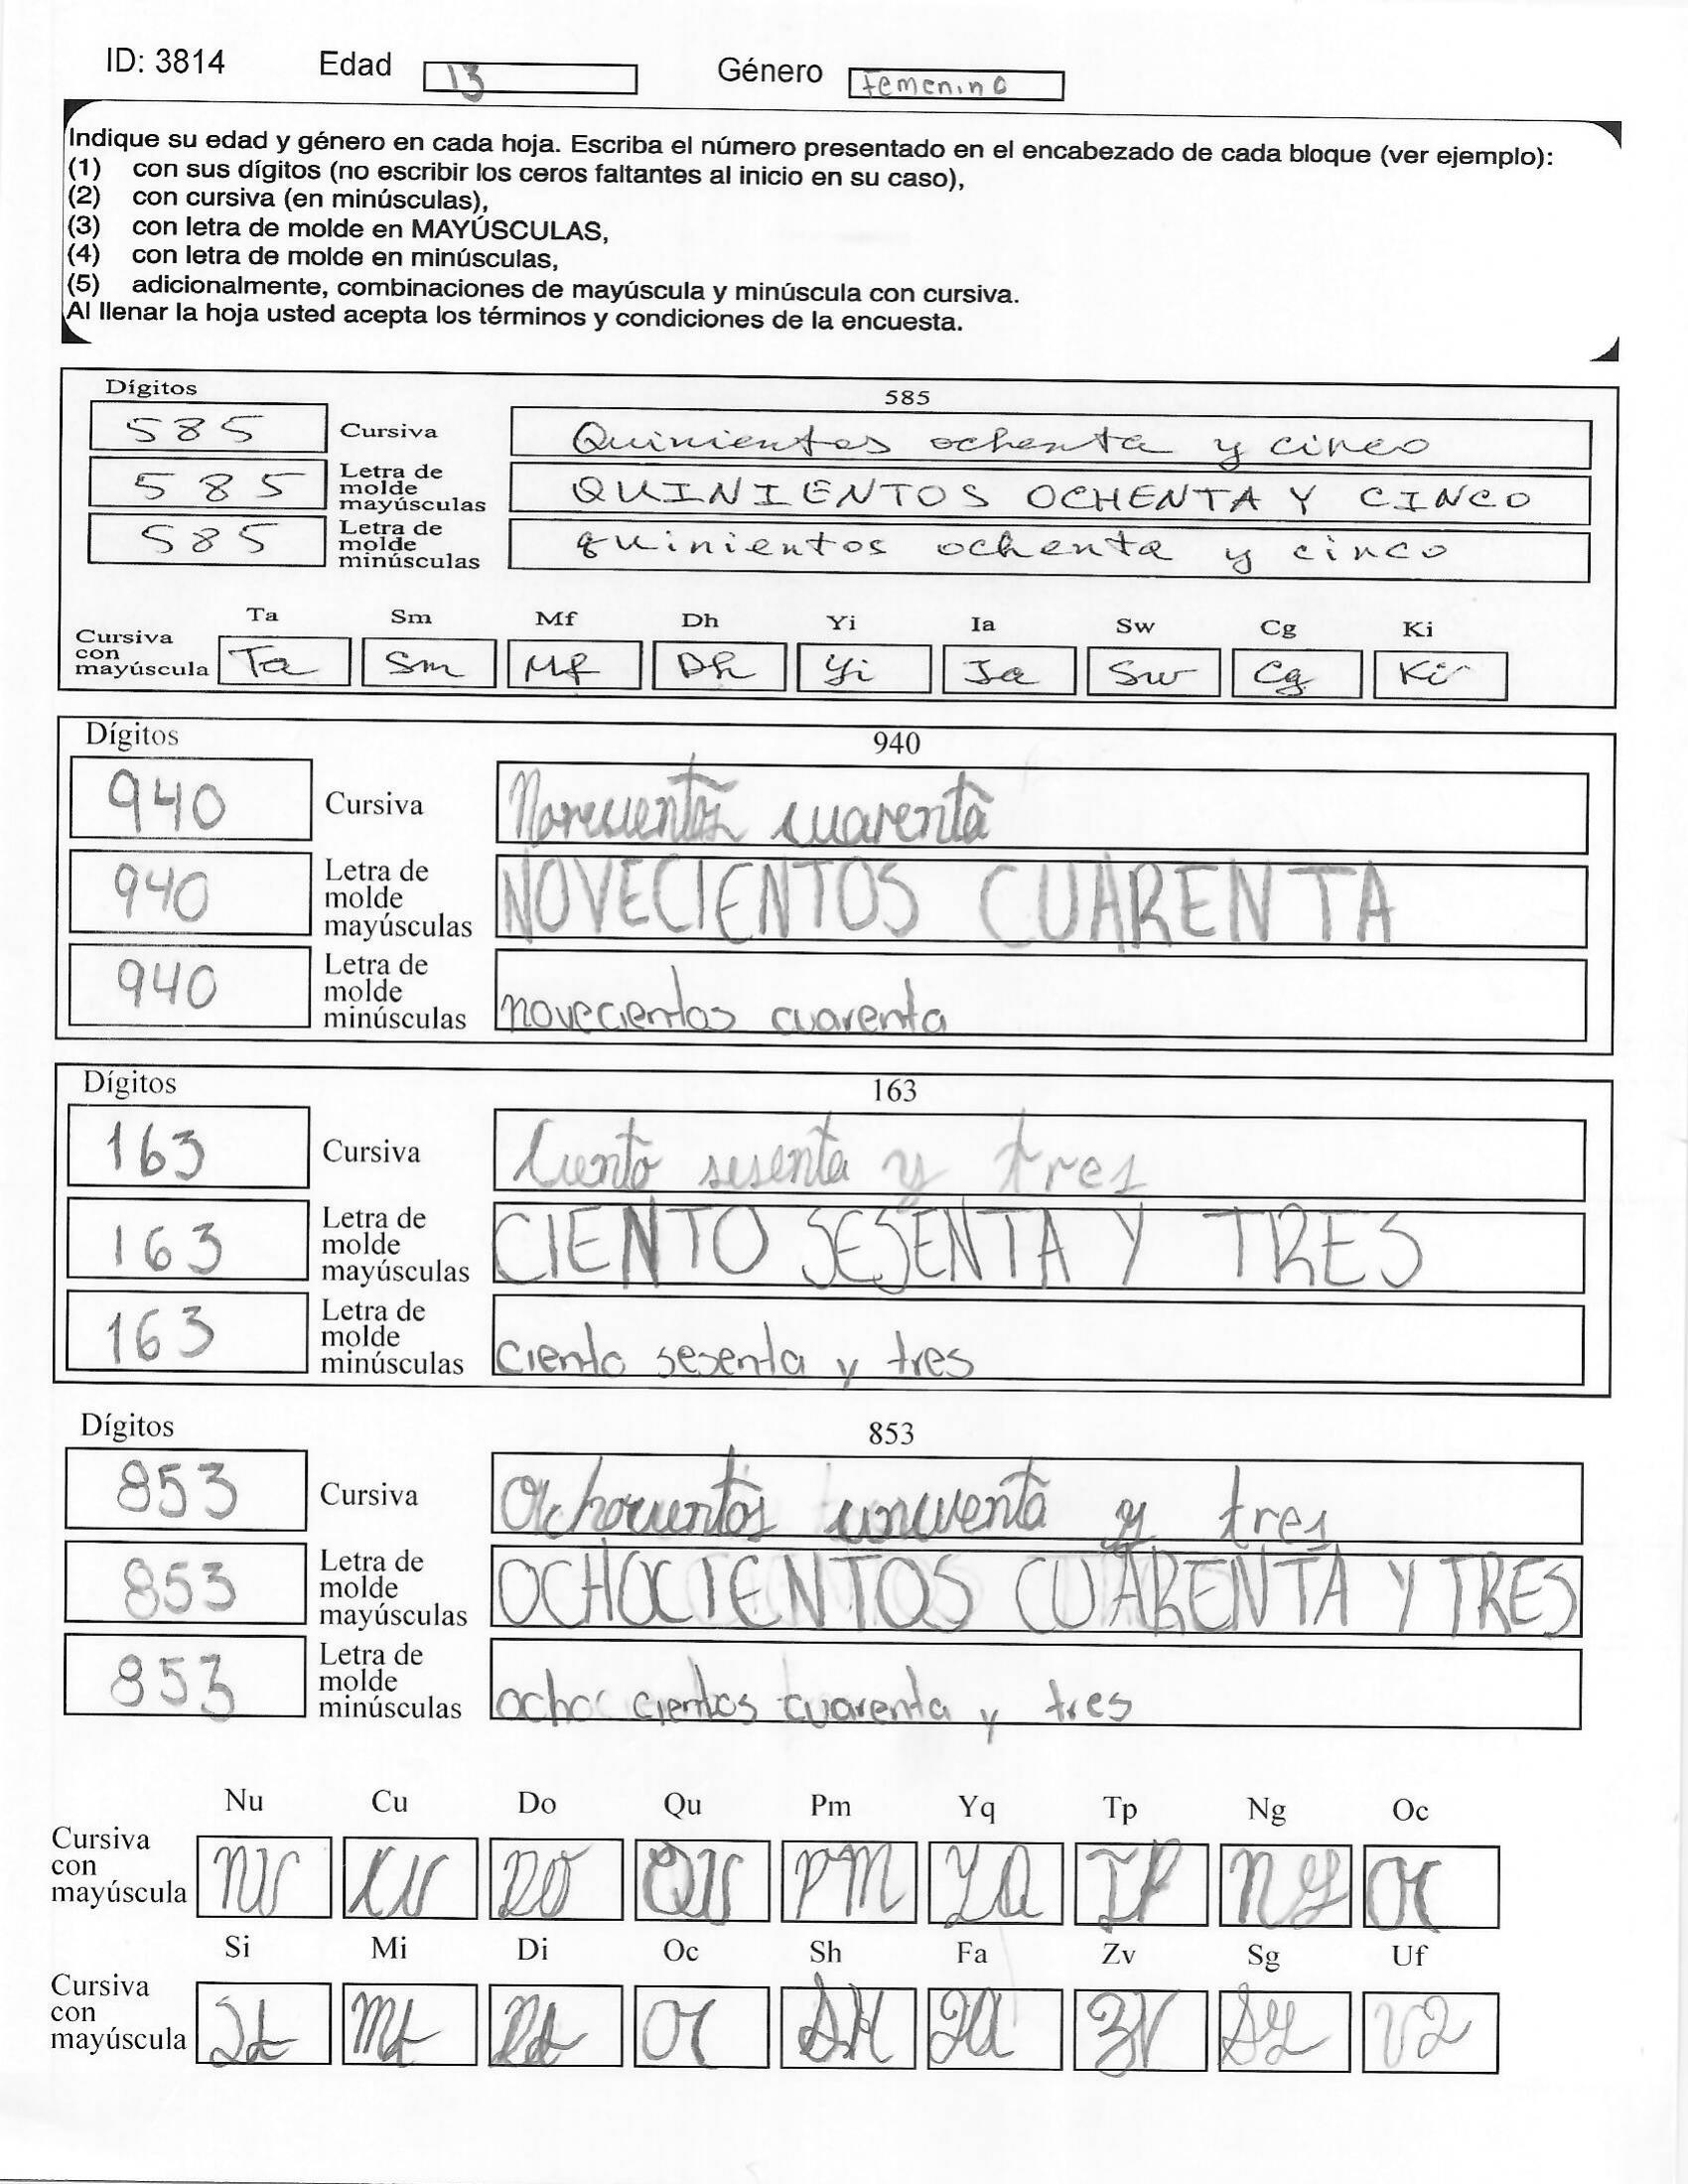 ID: 3814 Edad 13 Género femenino
Indique su edad y género en cada hoja. Escriba el número presentado en el encabezado de cada bloque (ver ejemplo):
(1) con sus dígitos (no escribir los ceros faltantes al inicio en su caso),
(2) con cursiva (en minúsculas),
(3) con letra de molde en MAYÚSCULAS,
(4) con letra de molde en minúsculas,
(5) adicionalmente, combinaciones de mayúscula y minúscula con cursiva.
Al llenar la hoja usted acepta los términos y condiciones de la encuesta.
Dígitos 585
585 Cursiva Quinientos ochenta y cinco
585 Letra de molde mayúsculas QUINIENTOS OCHENTA Y CINCO
585 Letra de molde minúsculas quinientos ochenta y cinco
Ta Sm Mf Dh Yi Ia Sw Cg Ki
Cursiva con mayúscula Ta Sm Mf Dh Yi Ia Sw Cg Ki
Dígitos 940
940 Cursiva Novecientos cuarenta
940 Letra de molde mayúsculas NOVECIENTOS CUARENTA
940 Letra de molde minúsculas novecientos cuarenta
Dígitos 163
163 Cursiva Ciento sesenta y tres
163 Letra de molde mayúsculas CIENTO SESENTA Y TRES
163 Letra de molde minúsculas ciento sesenta y tres
Dígitos 853
853 Cursiva Ochocientos cincuenta y tres
853 Letra de molde mayúsculas OCHOCIENTOS CUARENTA Y TRES
853 Letra de molde minúsculas ocho cientos cuarenta y tres
Nu Cu Do Qu Pm Yq Tp Ng Oc
Cursiva con mayúscula NU CU DO QU PM YQ TP NG OC
Si Mi Di Oc Sh Fa Zv Sg Uf
Cursiva con mayúscula SI MI DI OC SH FA ZV SG UF